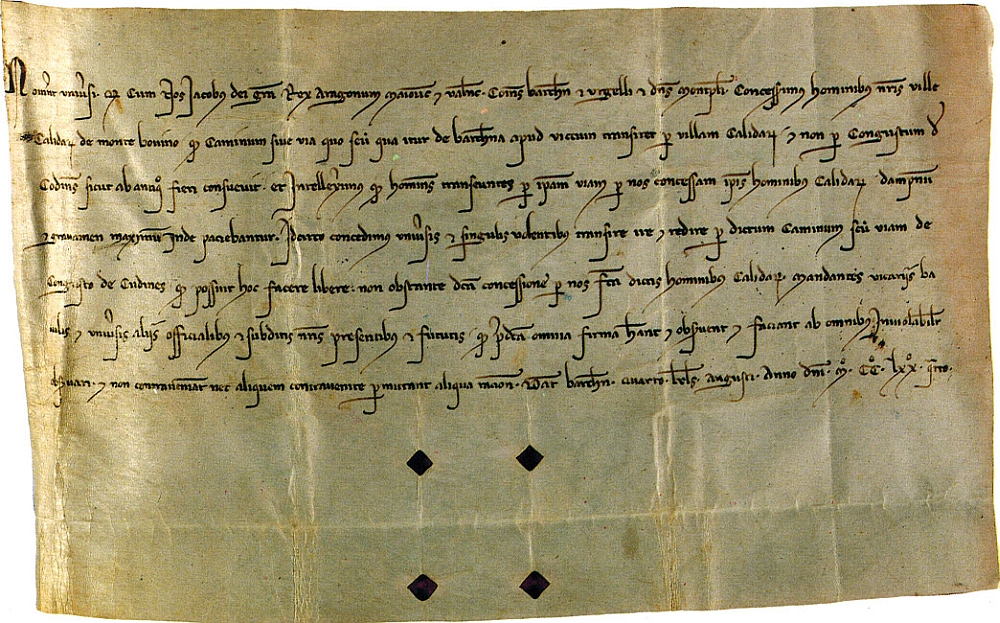 Noverint univ̄si. qd Cum Nos Jacobus dei grā Rex Aragonum maioric̄ et valenc̄. Comes barchn̄ et urgelli et dn̄s montispl̄i. Concesserimus hominibus nr̄is ville
Calidar̄ de monte bovino qd Caminum sive via quo seu qua itur de barchn̄a apud vicum transiret p villam Calidar̄. et non p Congustum de
Codines sicut ab antiq̄o fieri consuevit. et Intellexerimus qd homines transeuntes p ip̄am viam p nos concessam ip̄is hominibus Calidar̄ dampnum
et gravamen maximum inde paciebantur. Idcirco concedimus univ̄sis et singulis volentibus transire ire et redire p dictum Caminum seu viam de
Congusto de Codines qd possint hoc facere libere. non obstante dc̄a concessione p nos fc̄a dictis hominibus Calidar̄. mandantes vicarijs ba
iulis et univ̄sis alijs officialibus et subditis nr̄is presentibus et futuris qd p̄dc̄a omnia firma hēant et observent et faciant ab omnibus Inviolabilit̄
observari. et non contraveniant nec aliquem contravenire p̄mittant aliqua rac̄one. Dat̄ barchn̄. quarto. kls̄. augusti. Anno dn̄i. mº. CCº. lxxº. q̄rto.